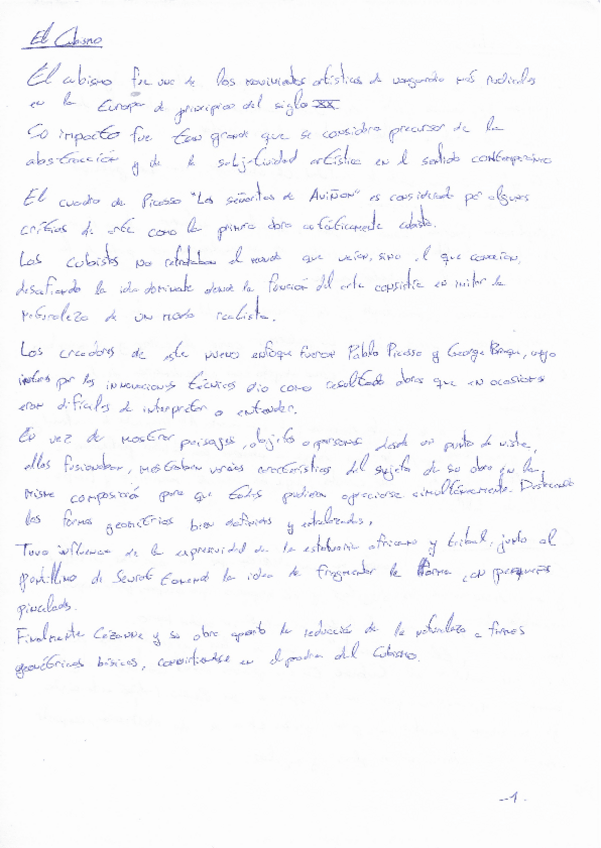 El Cubismo
El cubismo fue uno de los movimientos artísticos de vanguardia más radicales
en la Europa de principios del siglo XX
Su impacto fue tan grande que se considera precursor de la
abstracción y de la subjetividad artística en el sentido contemporáneo
El cuadro de Picasso "Las señoritas de Aviñon" es considerado por algunos
críticos de arte como la primera obra auténticamente cubista.
Los cubistas no retrataban el mundo que veían, sino el que conocían,
desafiando la idea dominante donde la función del arte consistía en imitar la
naturaleza de un modo realista.
Los creadores de este nuevo enfoque fueron Pablo Picasso y George Braque, cuyo
interes por las innovaciones técnicas dio como resultado obras que en ocasiones
eran difíciles de interpretar o entender.
En vez de mostrar paisajes, objetos o personas desde un punto de vista,
ellos fusionaban, mostraban varias características del sujeto de su obra en la
misma composición para que todas pudieran apreciarse simultáneamente. Destacando
las formas geométricas bien definidas y entrelazadas,
Tuvo influencia de la expresividad de la estatuaria africana y tribal, junto al
puntillismo de Seurat tomando la idea de fragmentar la forma con pequeñas
pinceladas.
Finalmente Cézanne y su obra aportó la reducción de la naturaleza a formas
geométricas básicas, convirtiendose en el padre del Cubismo.
-1.